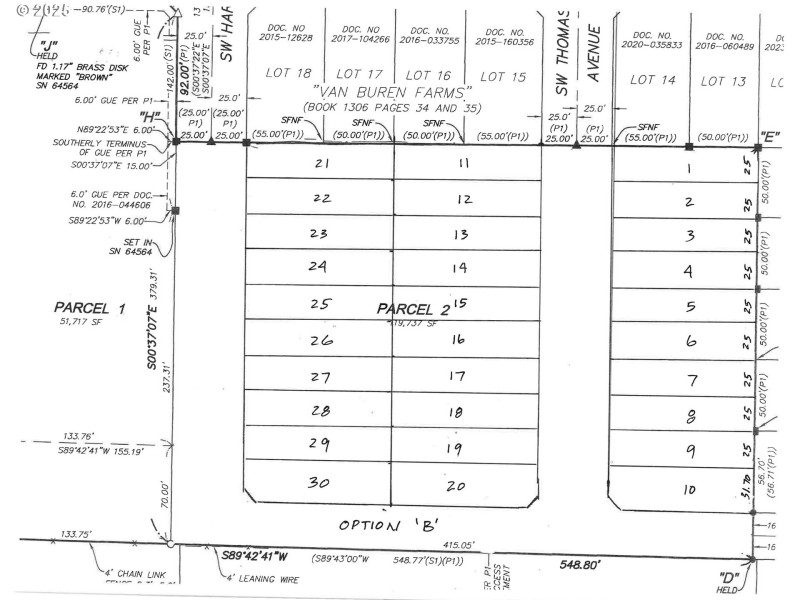 © 2026
90.76'(S1)
"J"
HELD
FD 1.17" BRASS DISK
MARKED "BROWN"
SN 64564
6.00' GUE
PER P1
142.00'(S1)
92.00'(P1)
(S00°37'22"E
(S00°37'07"E
13
1.
25.0'
SW HAR
DOC. NO
2015-12628
LOT 18
DOC. NO.
2017-104266
LOT 17
DOC. NO.
2016-033755
LOT 16
DOC. NO.
2015-160356
LOT 15
"VAN BUREN FARMS"
(BOOK 1306 PAGES 34 AND 35)
SW THOMAS
AVENUE
DOC. NO.
2020-035833
LOT 14
DOC. NO.
2016-060489
LOT 13
DOC
2023
LO
6.00' GUE PER P1
"H"
N89°22'53"E 6.00'
SOUTHERLY TERMINUS
OF GUE PER P1
S00°37'07"E 15.00'
(25.00'
P1)
25.00'
(25.00'
P1)
25.00'
25.0'
SFNF
(55.00'(P1))
SFNF
(50.00'(P1))
SFNF
(50.00'(P1))
(55.00'(P1))
25.0'
(25.00'
P1)
25.00'
25.0'
(P1)
25.00'
SFNF
(55.00'(P1))
(50.00'(P1))
"E"
6.0' GUE PER DOC.
NO. 2016-044606
S89°22'53"W 6.00'
SET IN
SN 64564
PARCEL 1
51,717 SF
S00°37'07"E 379.31'
237.31'
133.76'
S89°42'41"W 155.19'
70.00'
21
11
22
12
23
13
24
14
25
PARCEL 2
15
19,737 SF
26
16
27
17
28
18
29
19
30
20
1
25
50.00'(P1)
2
25
3
25
50.00'(P1)
4
25
5
25
50.00'(P1)
6
25
7
25
50.00'(P1)
8
25
9
25
56.70'
(56.71'(P1))
10
31.70
16
16
OPTION 'B'
133.75'
S89°42'41"W
(S89°43'00"W
548.77'(S1)(P1))
415.05'
548.80'
4' CHAIN LINK
4' LEANING WIRE
ER P1
CCESS
MENT
"D"
HELD